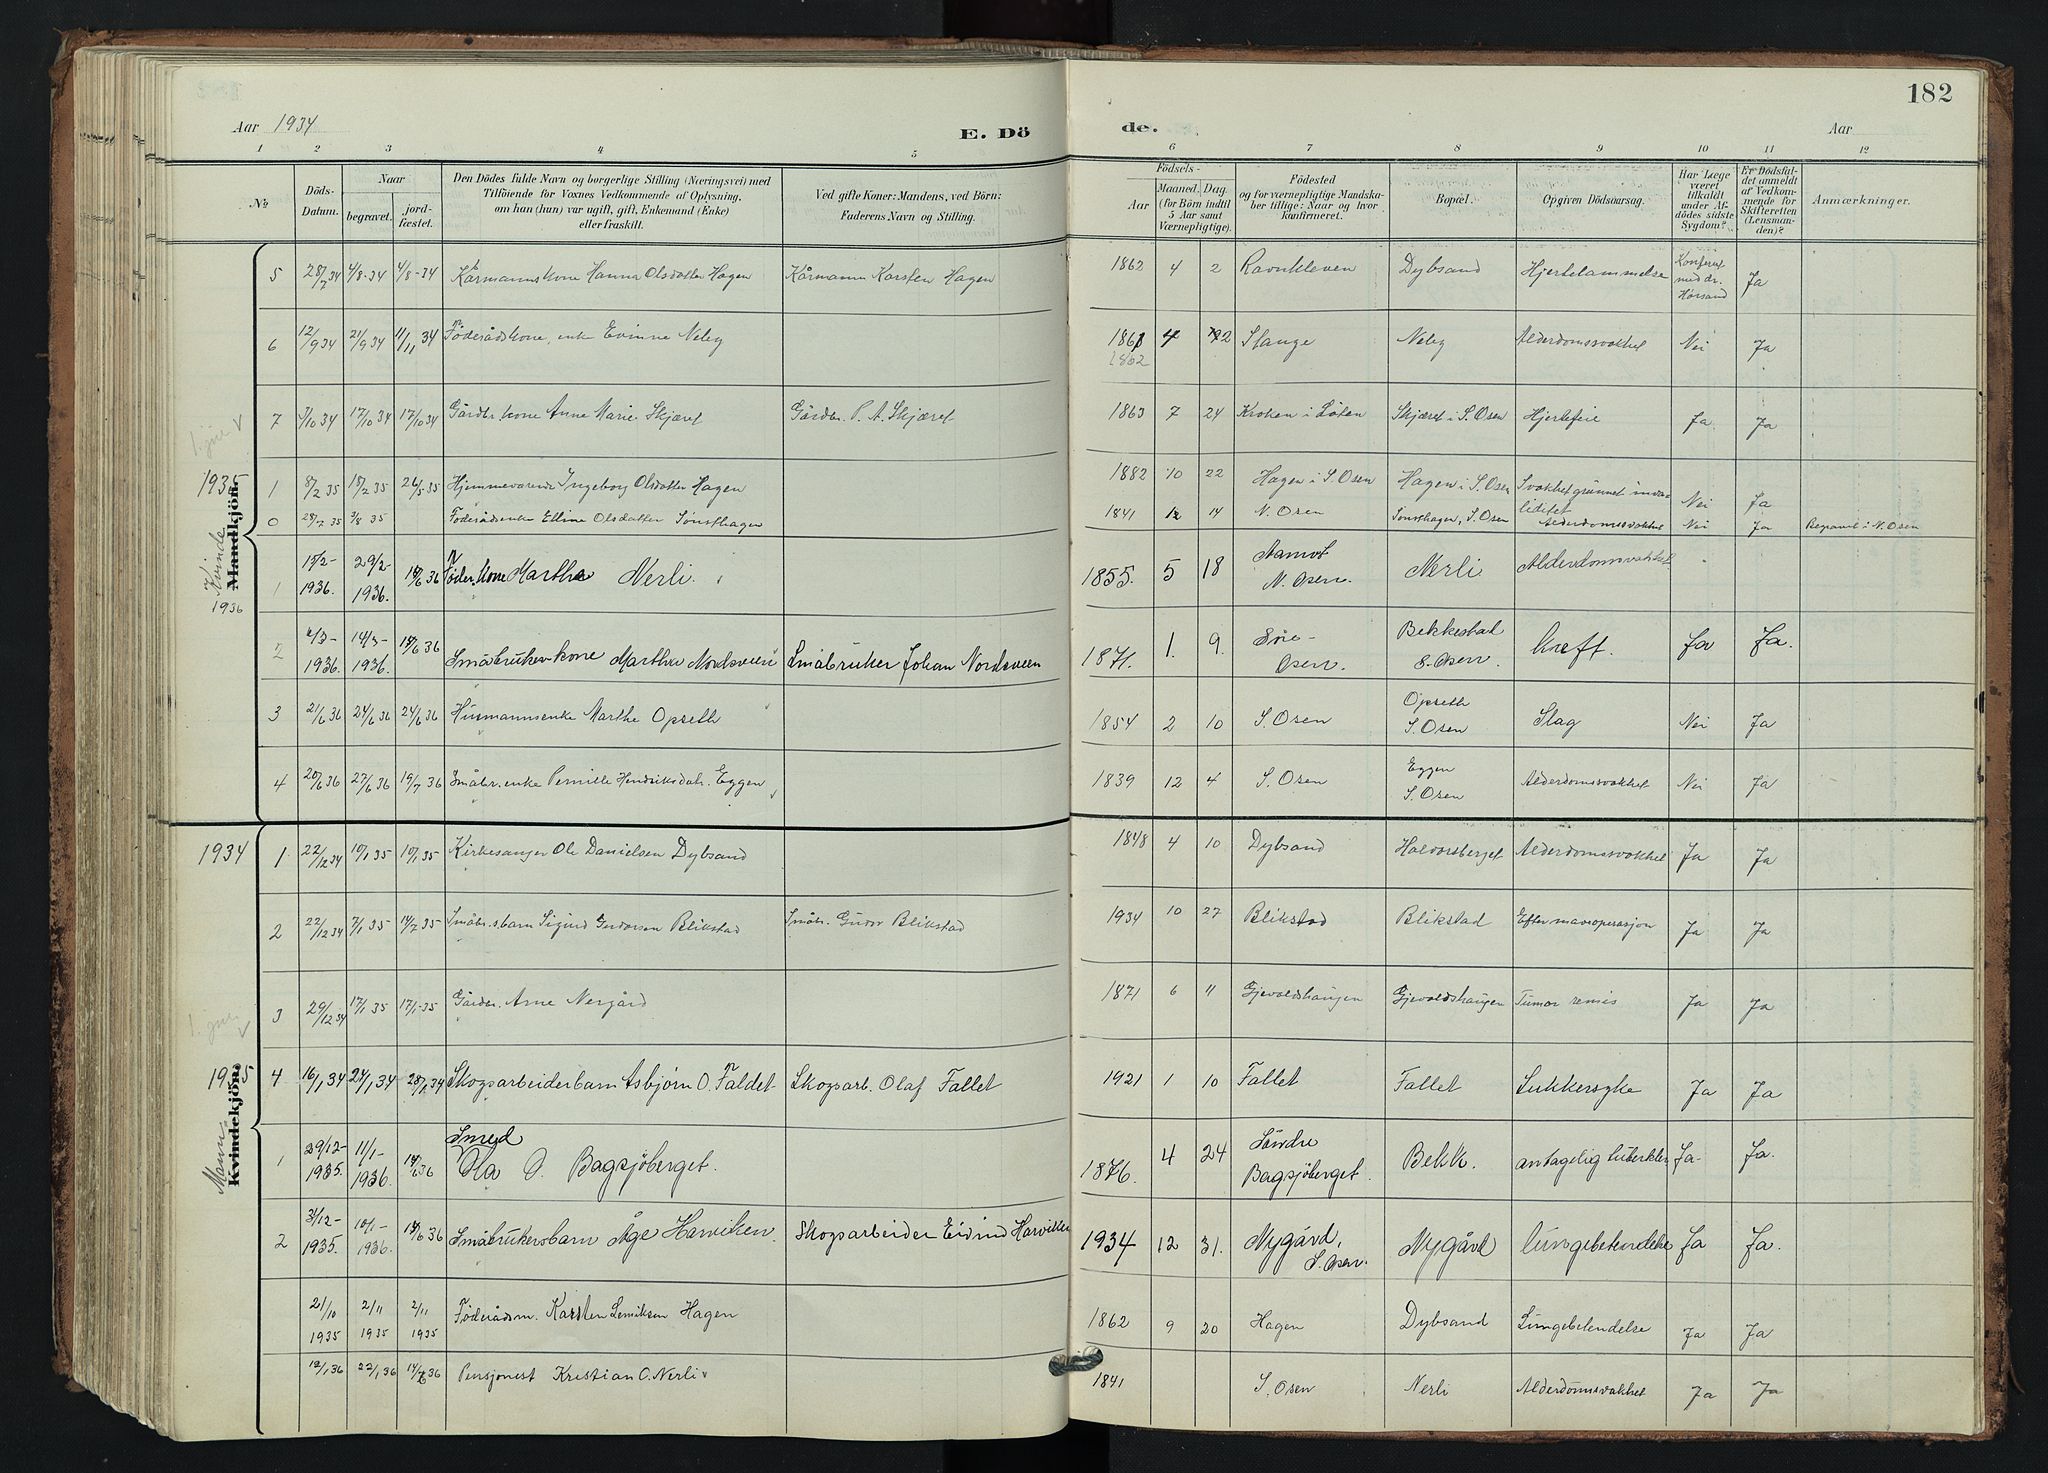 182
Aar 1934
E. Dö
de.
Aar
1 2 3 4 5
6 7 8 9 10 11 12
No.
Döds-Datum.
Naar
begravet.
jordfæstet.
Den Dödes fulde Navn og borgerlige Stilling (Næringsvei) med
Tilföiende for Voxnes Vedkommende af Oplysning,
om han (hun) var ugift, gift, Enkemand (Enke)
eller fraskilt.
Ved gifte Koner: Mandens, ved Börn:
Faderens Navn og Stilling.
Födsels-
Aar
Maaned. Dag.
(for Börn indtil
5 Aar samt
Værnepligtige).
Födested
og for værnepligtige Mandskaber tillige: Naar og hvor
konfirmeret.
Bopæl.
Opgiven Dödsaarsag.
Har Læge
været
tilkaldt
under Afdödes sidste
Sygdom?
Er Dödsfaldet anmeldt
af Vedkommende for
Skifteretten
(Lensmanden)?
Anmærkninger.
5 28/7 34 4/8-34 4/8-34 Kårmannskone Hanna Olsdatter Hagen Kårmann Karsten Hagen 1862 4 2 Ravnkleven Dybsand Hjertelammelse Konferert med dr. Hørsand Ja
6 12/9 34 21/9 34 11/11 34 Föderådskone, enke Evinne Neby 1861 1862 4 22 Stange Neby Alderdomssvakhet Nei Ja
7 3/10 34 17/10 34 17/10 34 Gårdbr. kone Anne Marie Skjæret Gårdbr. P. A. Skjæret 1863 7 24 Kroken i Løten Skjæret i S. Osen Hjertefeil Ja Ja
1935
Mandkjön.
Kvinde
1936
1 8/2 35 18/2 35 26/5 35 Hjemmeværende Ingeborg Olsdatter Hagen 1882 10 22 Hagen i S. Osen Hagen i S. Osen Svakhet grunnet invaliditet Nei Ja
0 28/7 35 3/8 35 Föderådsenke Elline Olsdatter Sønsthagen 1841 12 14 N. Osen Sønsthagen, S. Osen Alderdomssvakhet Nei Ja Begravet i N. Osen
1 15/2-1936. 29/2-1936. 14/6 36 Föder.kone Marthe Nerli. 1855. 5 18 Aamot N. Osen. Nerli Alderdomsvakhet
2 4/3-1936. 14/3-1936. 14/6 36 Småbrukerkone Marthe Nordsveen Småbruker Johan Nordsveen 1871. 1. 9. Søre-Osen. Bekkestad S. Osen. kreft. Ja Ja.
3 21/6 36 24/6 36 24/6 36 Husmannsenke Marthe Opseth 1854 2 10 S. Osen Opseth S. Osen Slag Nei Ja
4 20/6 36 27/6 36 19/7 36 Småbr. enke Pernille Henriksdatr. Eggen 1839 12 4 S. Osen Eggen S. Osen Alderdomssvakhet Nei Ja
1934
1 22/12 34 10/1 35 10/1 35 Kirkesanger Ole Danielsen Dybsand 1848 4 10 Dybsand Halvorsberget Alderdomssvakhet Ja Ja
2 22/12 34 7/1 35 14/7 35 Småbr.s barn Sigurd Gudorsen Blikstad Småbr. Gudor Blikstad 1934 10 27 Blikstad Blikstad Efter maveoperasjon Ja Ja
3 29/12 34 17/1 35 17/1-35 Gårdbr. Arne Nergård 1871 6 11 Gjevoldshaugen Gjevoldshaugen Tumor renis Ja Ja
1935
Kvindekjön.
Mann.
4 16/1 34 24/1 34 28/1 34 Skogsarbeiderbarn Asbjørn O. Faldet Skogsarb. Olaf Fallet 1921 1 10 Fallet Fallet Sukkersyke Ja Ja
1 29/12-1935. 11/1-1936. 14/6 36 Smed Ola O. Bagsjöberget. 1876. 4 24 Söndre Bagsjöberget. Bekk. antagelig tuberkler Ja. Ja.
2 31/12-1935. 10/1-1936. 14/6 36 Småbrukersbarn Åge Harviken. Skogsarbeider Eivind Harviken 1934 12 31. Nygård, S. Osen. Nygård lungebetendelse Ja Ja.
21/10 1935 2/11 1935 2/11 1935 Föderådsm. Karsten Lemiksen Hagen 1862 9 20 Hagen Dybsand Lungebetendelse Ja Ja
12/1 36 22/1 36 14/6 36 Pensjonist Kristian O. Nerli 1841 S. Osen Nerli Alderdomsvakhet Ja Ja